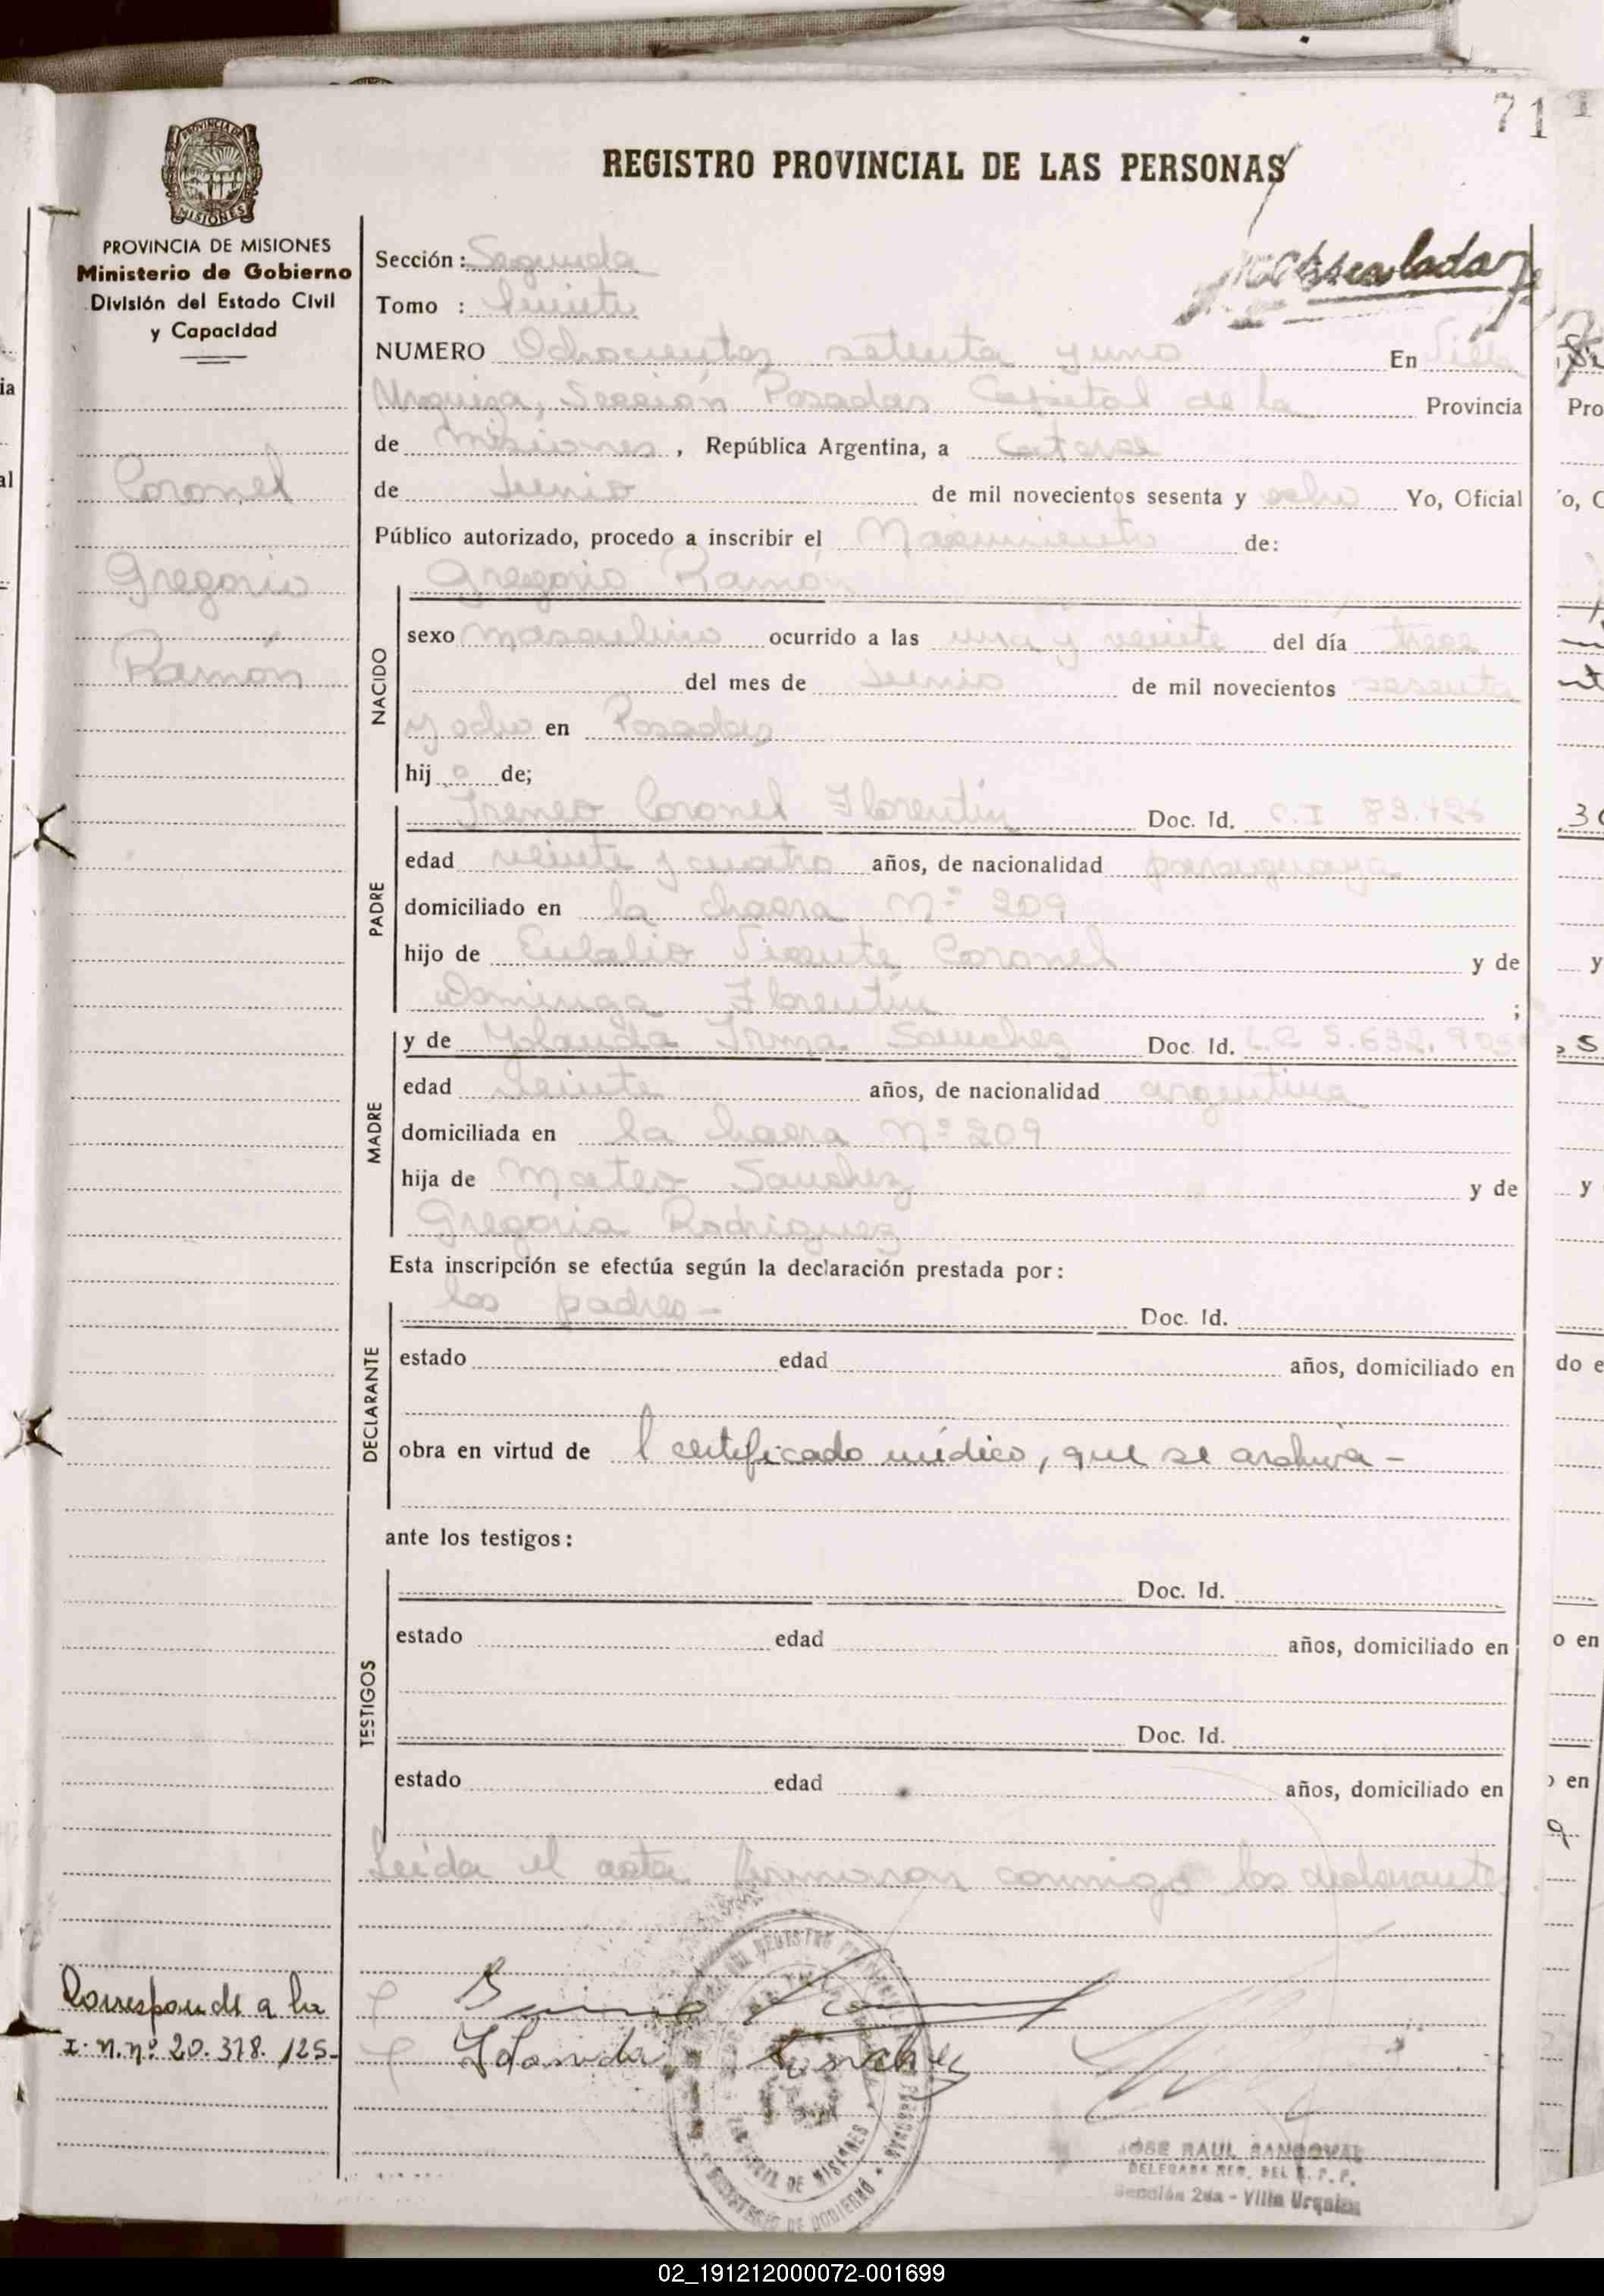 71
PROVINCIA DE MISIONES
PROVINCIA DE MISIONES
Ministerio de Gobierno
División del Estado Civil
y Capacidad
Coronel
Gregorio
Ramón
Corresponde a la
I. N. nº 20.378.125-
REGISTRO PROVINCIAL DE LAS PERSONAS
Sección: Segunda
Tomo :
NUMERO Ochocientos setenta y uno En Villa
Urquiza, Sección Posadas Capital de la Provincia
de Misiones, República Argentina, a catorce
de Junio de mil novecientos sesenta y ocho Yo, Oficial
Público autorizado, procedo a inscribir el Nacimiento de:
NACIDO
Gregorio Ramón
sexo masculino ocurrido a las una y veinte del día trece
del mes de Junio de mil novecientos sesenta
y ocho en Posadas
hijo de;
PADRE
Ireneo Coronel Florentin Doc. Id. C.I 83.426
edad veinte y cuatro años, de nacionalidad paraguaya
domiciliado en la chacra Nº 209
hijo de Eulalio Vicente Coronel y de
Dominga Florentin ;
MADRE
y de Yolanda Irma Sanchez Doc. Id. L.C 5.632.905
edad veinte años, de nacionalidad argentina
domiciliada en la chacra Nº 209
hija de Mateo Sanchez y de
Gregoria Rodriguez
Esta inscripción se efectúa según la declaración prestada por:
DECLARANTE
los padres- Doc. Id.
estado edad años, domiciliado en
obra en virtud de l certificado médico, que se archiva-
ante los testigos:
TESTIGOS
Doc. Id.
estado edad años, domiciliado en
Doc. Id.
estado edad años, domiciliado en
Leída el acta firmaron conmigo los declarantes.
Yolanda Sanchez
JOSE RAUL SANDOVAL
DELEGADO REG. DEL R. P. P.
Sección 2da - Villa Urquiza
02_191212000072-001699